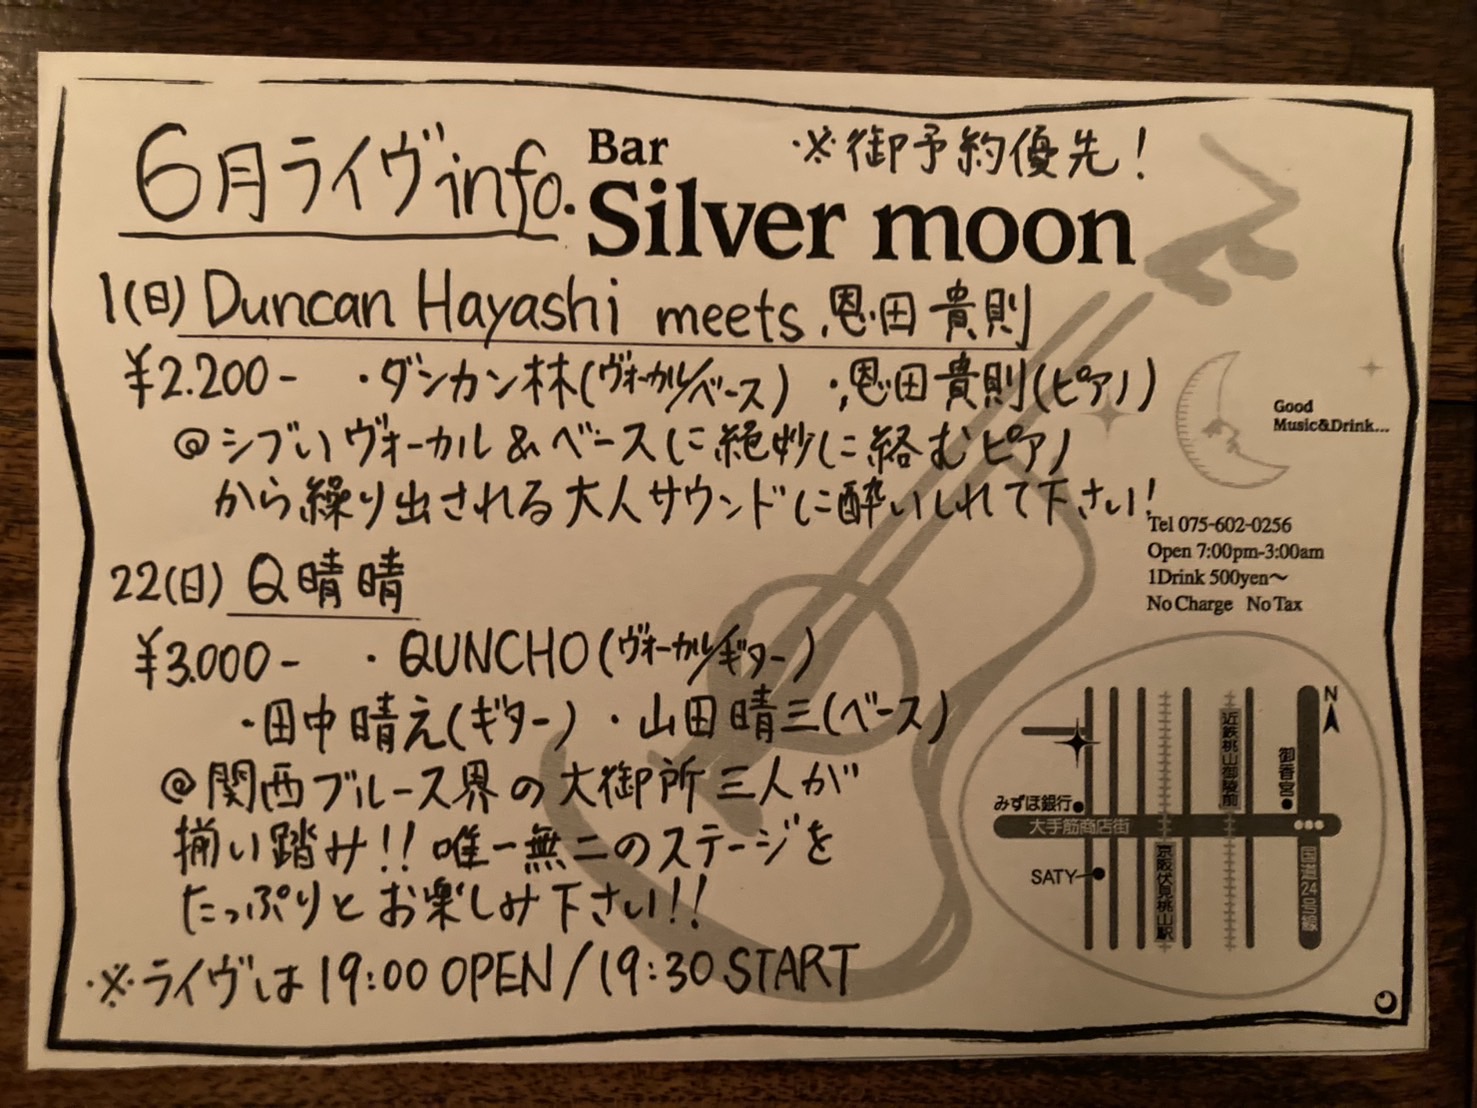 6月ライヴinfo.
Bar
Silver moon
※御予約優先!
1(日) Duncan Hayashi meets 恩田貴則
¥2.200- ・ダンカン林(ヴォーカル/ベース) ・恩田貴則(ピアノ)
@シブいヴォーカル&ベースに絶妙に絡むピアノ
から繰り出される大人サウンドに酔いしれて下さい!
22(日) Q晴晴
¥3.000- ・QUNCHO(ヴォーカル/ギター)
・田中晴え(ギター) ・山田晴三(ベース)
@関西ブルース界の大御所三人が
揃い踏み!! 唯一無二のステージを
たっぷりとお楽しみ下さい!!
※ライヴは19:00 OPEN/19:30 START
Good
Music&Drink...
Tel 075-602-0256
Open 7:00pm-3:00am
1Drink 500yen～
No Charge No Tax
N
近鉄桃山御陵前
御香宮
みずほ銀行
大手筋商店街
SATY
京阪伏見桃山駅
国道24号線